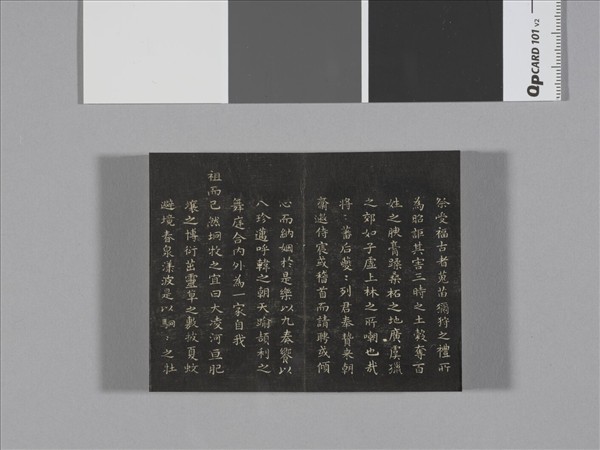 祭受福古者蒐苗獮狩之禮所
為昭詎其害三時之土穀奪百
姓之腴膏蹂桑柘之地廣虞獵
之郊如子虛上林之所嘲也哉
將將蕃后夔夔列君奉贄來朝
櫜遬侍宸或稽首而請聘或傾
心而納姻於是樂以九奏饗以
八珍邁呼韓之朝天瑜頡利之
舞庭合內外為一家自我
祖而已然坰牧之宜曰大凌河亘肥
壤之博衍茁靈草之數敷夏蚊
避境春泉漾波是以駉駉之牡
QPCARD 101 v2